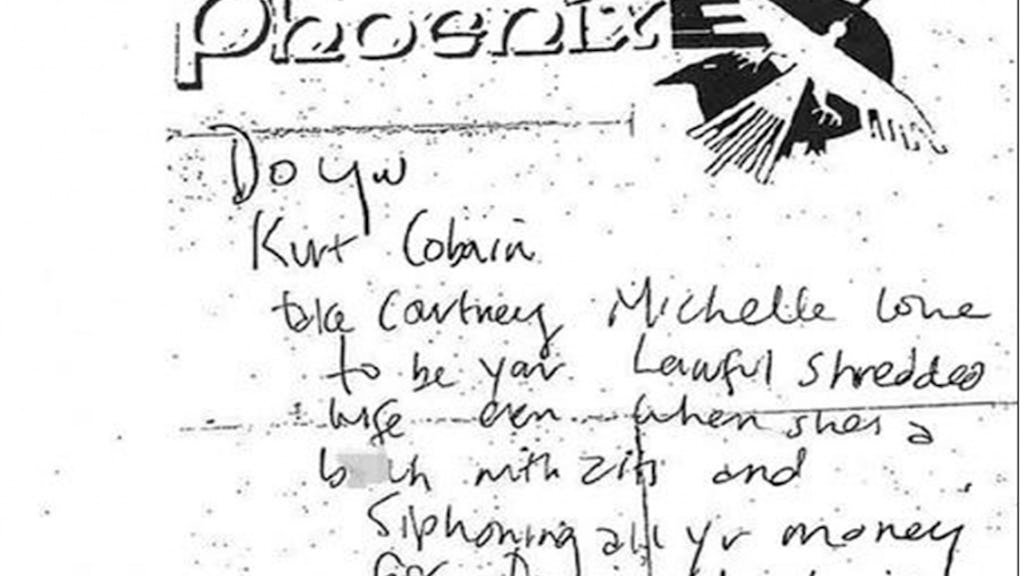 Phoenix
Do you
Kurt Cobain
take Courtney Michelle Love
to be your Lawful shredded
wife even when shes a
with zits and
Siphoning all yr money